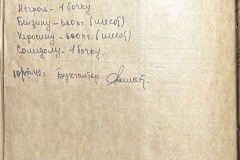 Негрол - 1 бочку
Бензину - 600 кг. (шесот)
Керосину - 600 кг. (шесот)
Солидолу - 1 бочку.
Бухгалтер